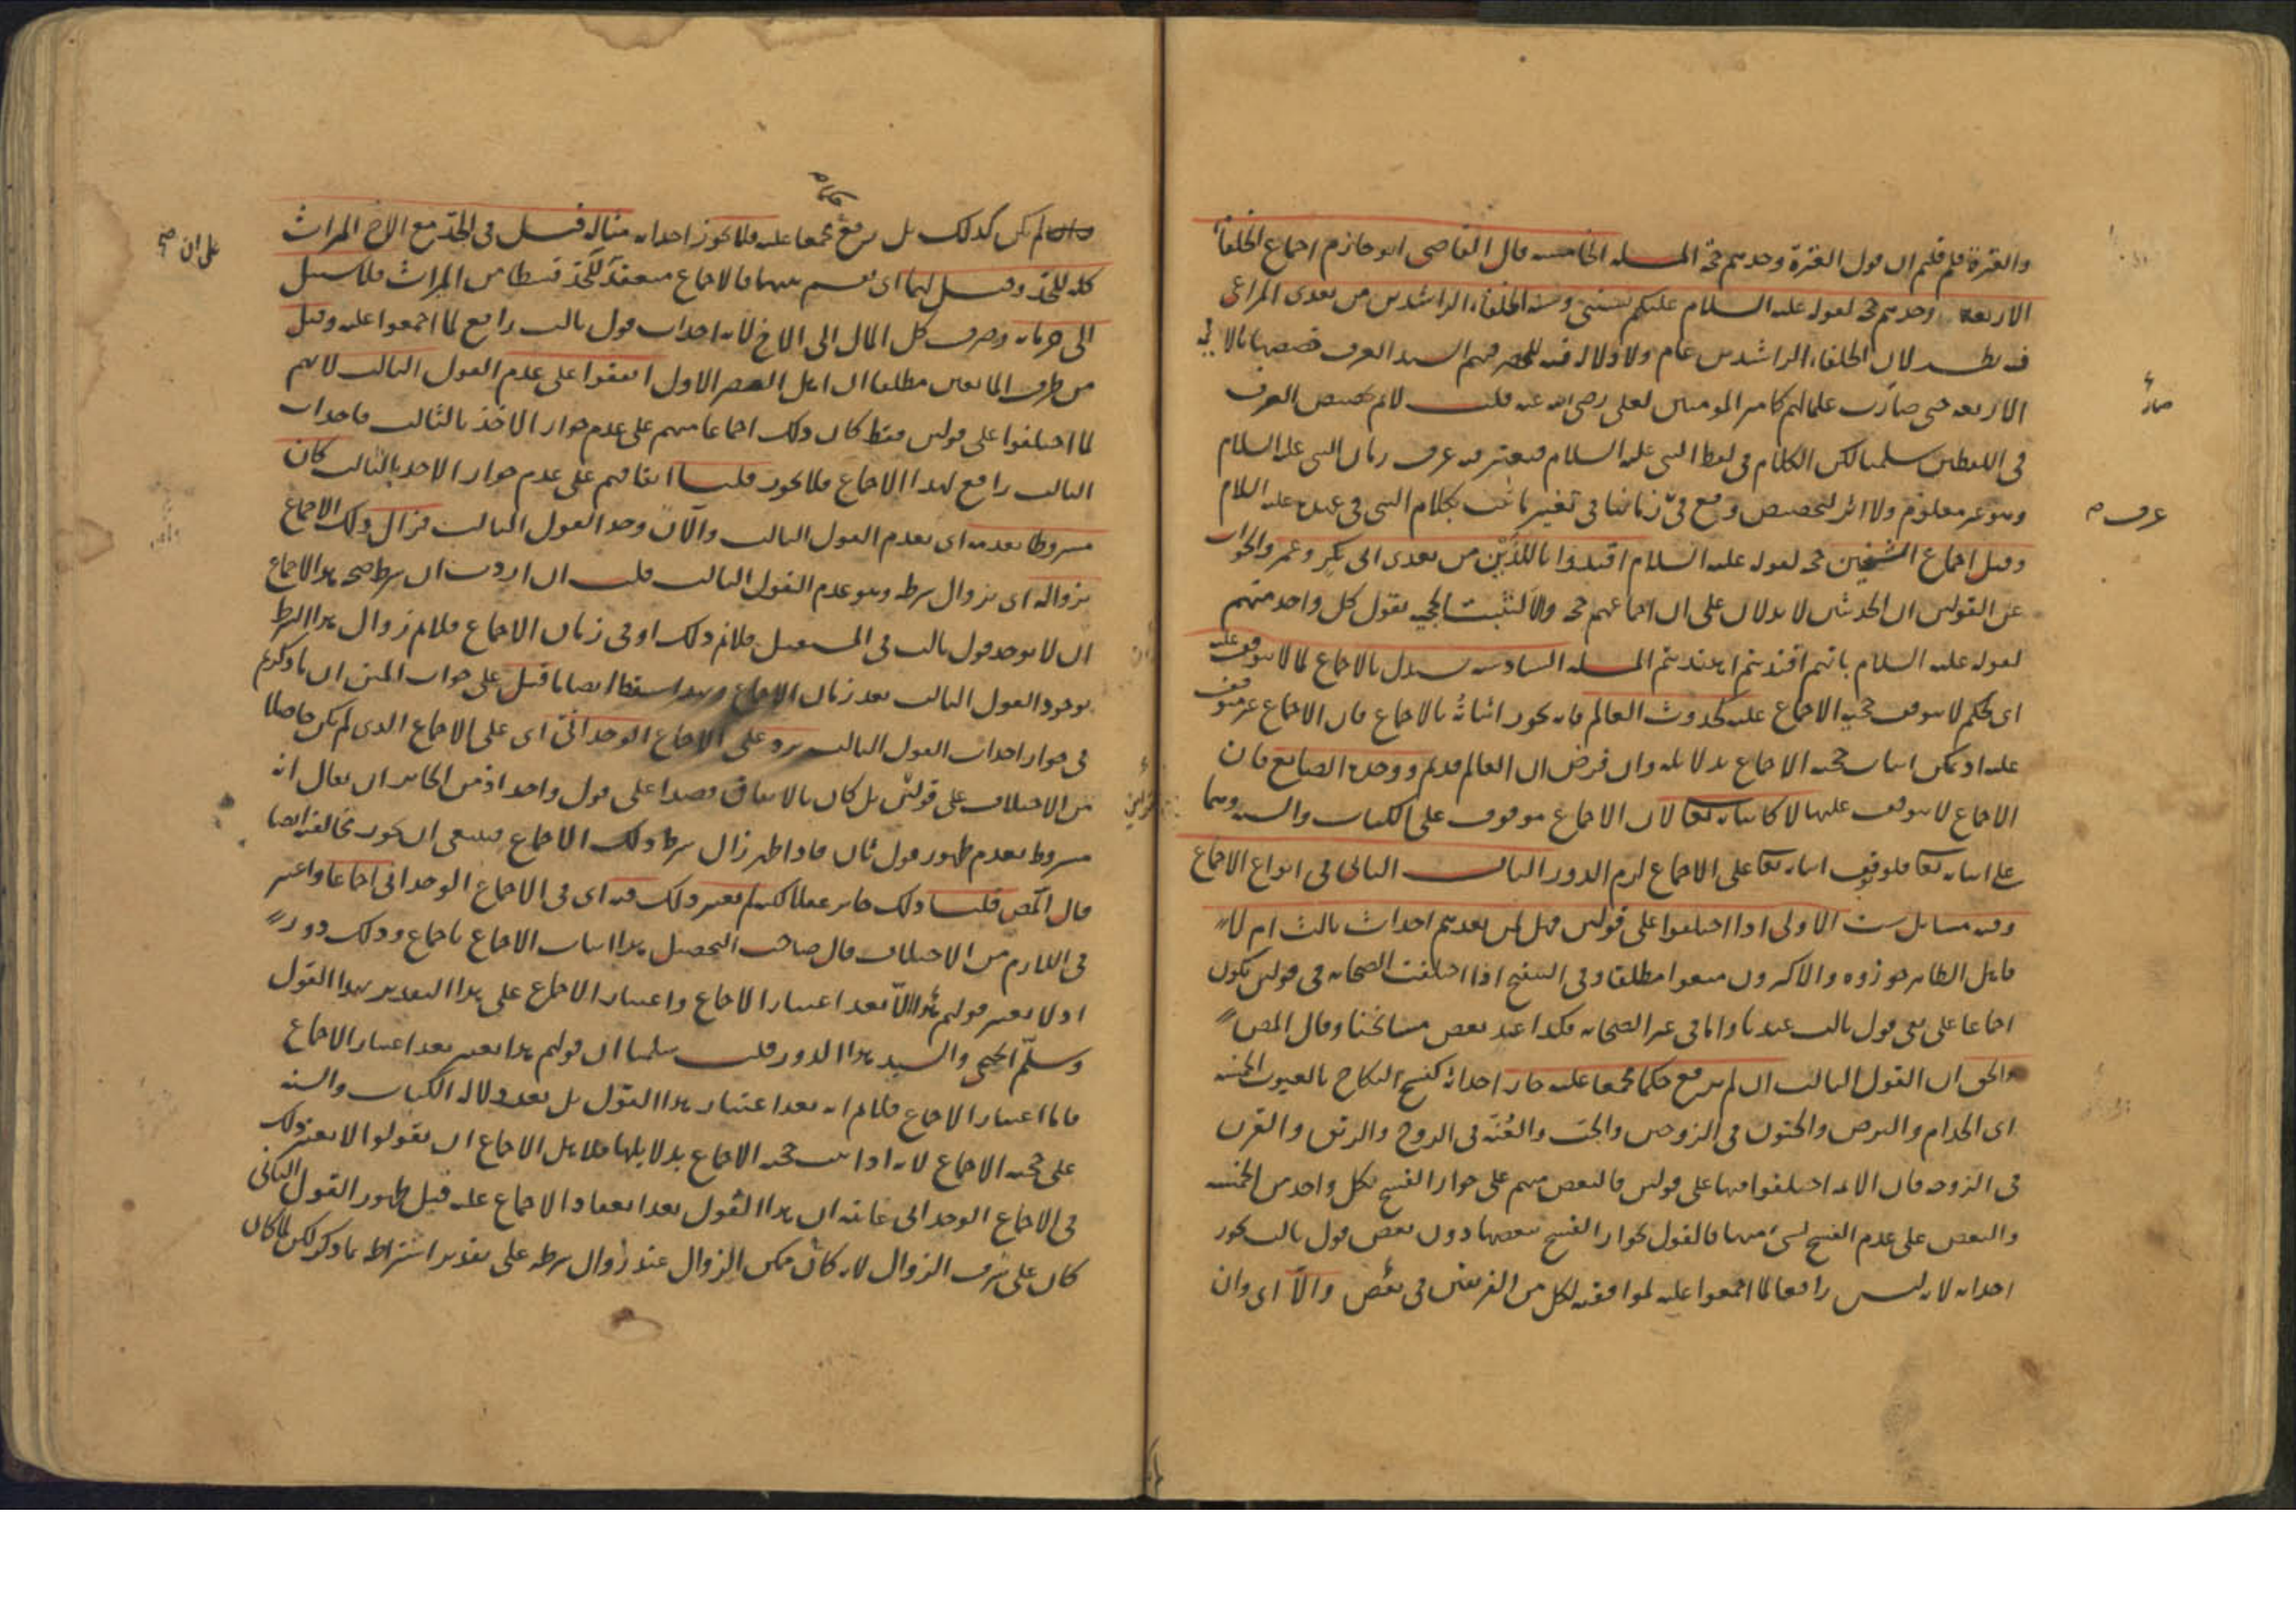 والعترة فلم قلتم ان قول العترة وحدهم حجة المسئلة الخامسة قال القاضى ابو حازم اجماع الخلفاء
الاربعة وحدهم حجة لقوله عليه السلام عليكم بسنتى وسنة الخلفاء الراشدين من بعدى المراغى
فيه نظر لان الخلفاء الراشدين عام ولا دلالة فيه للحصر فيهم السيد العرف خصصها بالائمة
الاربعة حتى صارت علما لهم كامير المومنين لعلى رضى الله عنه قلت لا نم تخصيص العرف
فى اللفظين سلمنا لكن الكلام فى لفظ النبى عليه السلام فيعتبر فيه عرف زمان النبى عليه السلام
وهو غير معلوم ولا اثر لتخصيص وقع فى زماننا فى تغيير ما ثبت بكلام النبى فى عهده عليه السلام
وقيل اجماع الشيخين حجة لقوله عليه السلام اقتدوا باللذين من بعدى ابى بكر وعمر والجواب
عن القولين ان الحديثين لا يدلان على ان اجماعهم حجة والا لثبت الحجية بقول كل واحد منهم
لقوله عليه السلام بايهم اقتديتم اهتديتم المسئلة السادسة يستدل بالاجماع لما لا يتوقف عليه
اى بحكم لا يتوقف حجية الاجماع عليه كحدوث العالم فانه يجوز اثباته بالاجماع فان الاجماع غير متوقف
عليه اذ يمكن اثبات حجية الاجماع بدلائله وان فرض ان العالم قديم ووحدة الصانع فان
الاجماع لا يتوقف عليها لا كاثباته تعا لان الاجماع موقوف على الكتاب والسنة وهما
على اثباته تعا فلو توقف اثباته تعا على الاجماع لزم الدور الباب الثانى فى انواع الاجماع
وفيه مسائل ست الاولى اذا اختلفوا على قولين فهل لمن بعدهم احداث ثالث ام لا
فاهل الظاهر جوزوه والاكثرون منعوا مطلقا وفى التنقيح اذا اختلفت الصحابة فى قولين يكون
اجماعا على نفى قول ثالث عندنا واما فى غير الصحابة فكذا عند بعض مشايخنا وقال المص
والحق ان القول الثالث ان لم يرفع حكما مجمعا عليه جاز احداثه كفسخ النكاح بالعيوب الخمسة
اى الجذام والبرص والجنون فى الزوجين والجب والعنة فى الزوج والرتق والقرن
فى الزوجة فان الائمة اختلفوا فيها على قولين فالبعض منهم على جواز الفسخ بكل واحد من الخمسة
والبعض على عدم الفسخ بشئ منها فالقول بجواز الفسخ ببعضها دون بعض قول ثالث يجوز
احداثه لانه ليس رافعا لما اجمعوا عليه لموافقته لكل من الفريقين فى بعض والا اى وان
صار
عرف
لم يكن كذلك بل يرفع مجمعا عليه فلا يجوز احداثه مثاله قيل فى الجد مع الاخ الميراث
كله للجد وقيل لهما اى يقسم بينهما فالاجماع منعقد ان للجد قسطا من الميراث فلا سبيل
الى حرمانه وصرف كل المال الى الاخ لانه احداث قول ثالث رافع لما اجمعوا عليه وقيل
من طرف المانعين مطلقا ان اهل العصر الاول اتفقوا على عدم القول الثالث لانهم
لما اختلفوا على قولين فقط كان ذلك اجماعا منهم على عدم جواز الاخذ بالثالث فاحداث
الثالث رافع لهذا الاجماع فلا يجوز قلنا اتفاقهم على عدم جواز الاخذ بالثالث كان
مشروطا بعدمه اى بعدم القول الثالث والآن وجد القول الثالث فزال ذلك الاجماع
بزواله اى بزوال شرطه وهو عدم القول الثالث قلت ان اردت ان شرط صحة هذا الاجماع
ان لا يوجد قول ثالث فى المستقبل فلا نم ذلك او فى زمان الاجماع فلا نم زوال هذا الشرط
بوجود القول الثالث بعد زمان الاجماع وبهذا سقط ايضا ما قيل على جواب المتن ان ما ذكرتم
فى جواز احداث القول الثالث يرد على الاجماع الوحدانى اى على الاجماع الذى لم يكن حاصلا
من الاختلاف على قولين بل كان بالاتفاق قصدا على قول واحد اذ من الجائز ان يقال انه
مشروط بعدم ظهور قول ثان فاذا ظهر زال شرط ذلك الاجماع فينبغى ان يجوز مخالفته ايضا
قال المص قلنا ذلك جائز عقلا لكنه لم يعتبر ذلك فيه اى فى الاجماع الوحدانى اجماعا واعتبر
فى اللازم من الاختلاف قال صاحب التحصيل هذا اثبات الاجماع باجماع وذلك دور
اذ لا يعتبر قولهم هذا الا بعد اعتبار الاجماع واعتبار الاجماع على هذا التقدير بهذا القول
وسلم الجميع والسيد هذا الدور قلت سلمنا ان قولهم هذا يعتبر بعد اعتبار الاجماع
فاما اعتبار الاجماع فلا نم انه بعد اعتبار هذا القول بل بعد دلالة الكتاب والسنة
على حجية الاجماع لانه اذا ثبت حجية الاجماع بدلائلها فلاهل الاجماع ان يقولوا لا يعتبر ذلك
فى الاجماع الوحدانى غايته ان هذا القول بعد انعقاد الاجماع عليه قبل ظهور القول الثانى
كان على شرف الزوال لانه كان ممكن الزوال عند زوال شرطه على تقدير اشتراطه بما ذكر لكن لما كان
على ان صح